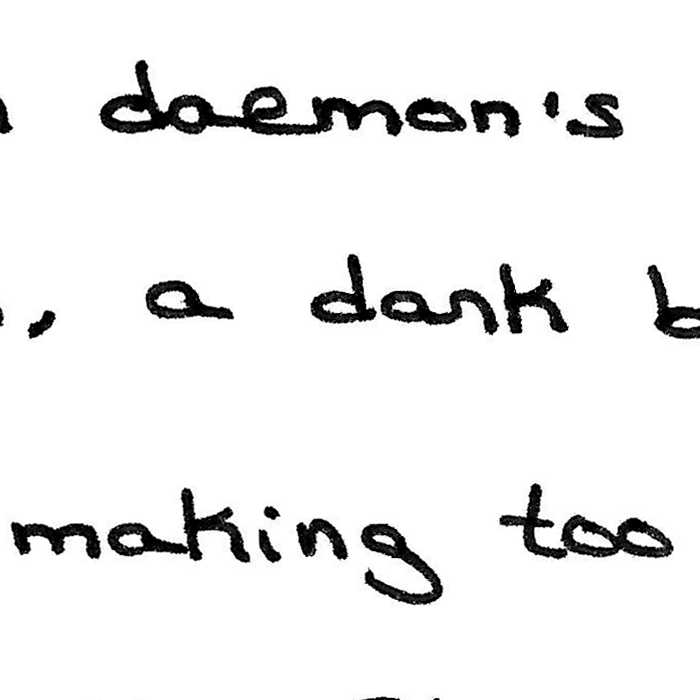 daemon's
, a dank
making too